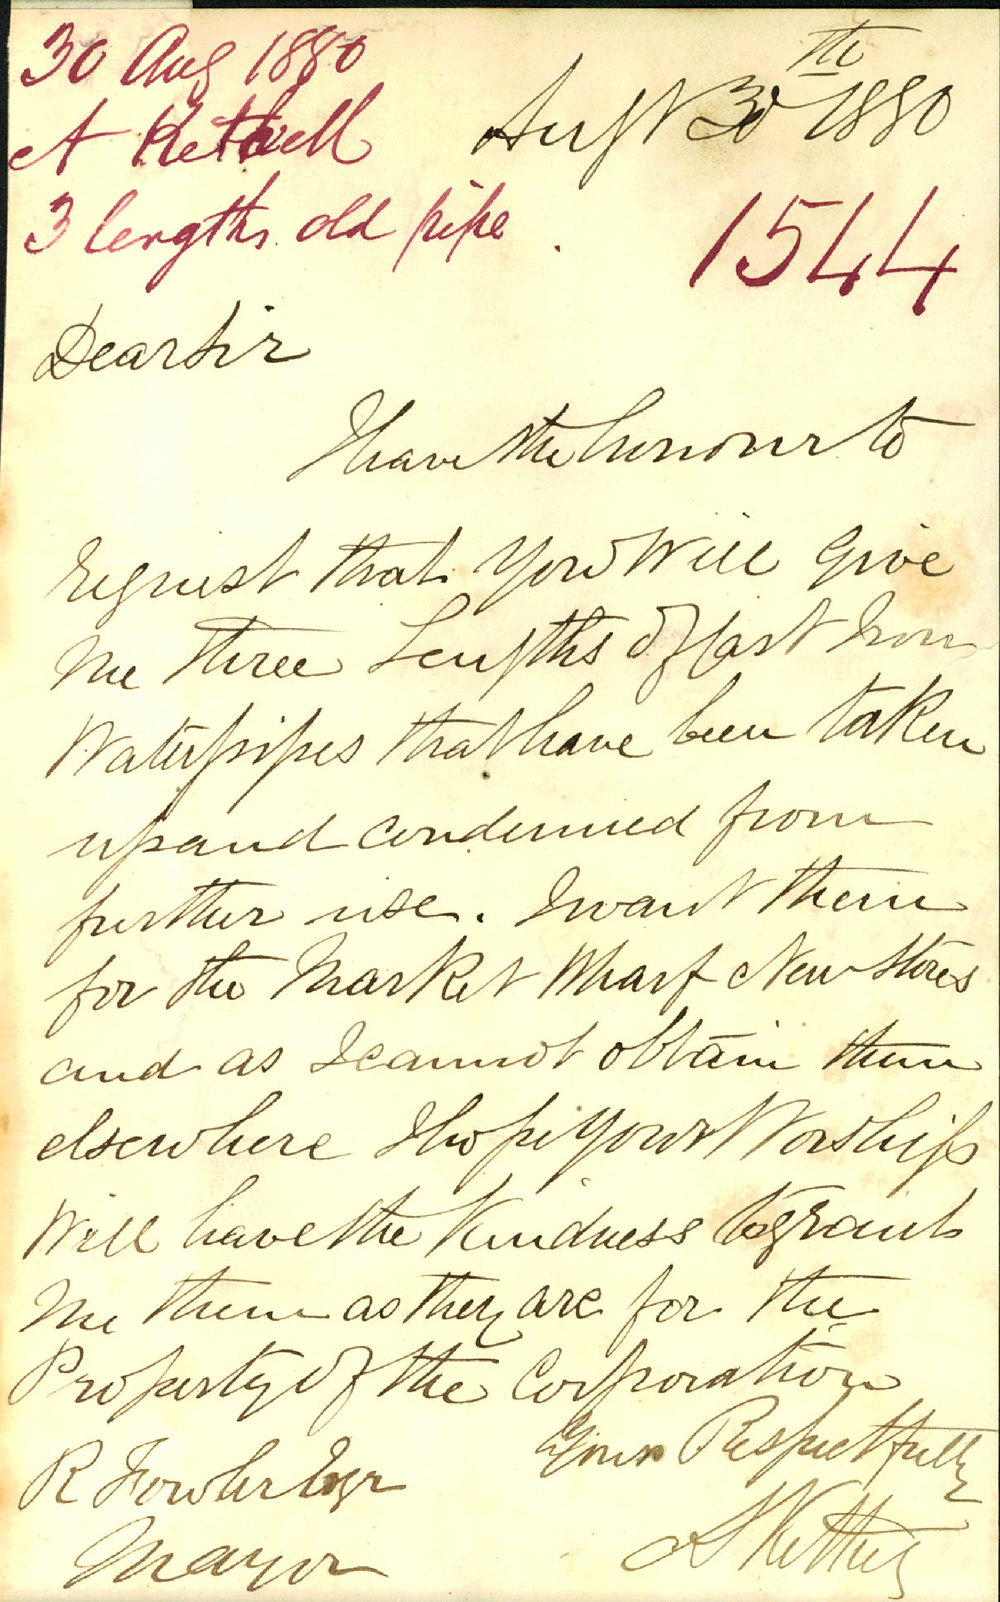 30 Aug 1880
A Kethell
3 lengths old pipe
Augst 30th 1880
1544
Dear Sir
I have the honour to
request that You Will Give
Me three Lengths of Cast Iron
Water pipes that have been taken
up and condemned from
further use. I want them
for the Market Wharf New Stores
and as I cannot obtain them
elsewhere I hope Your Worship
Will have the Kindness to grant
Me them as they are for the
Property of the Corporation
Yours Respectfully
R Fowler Esqr
Mayor